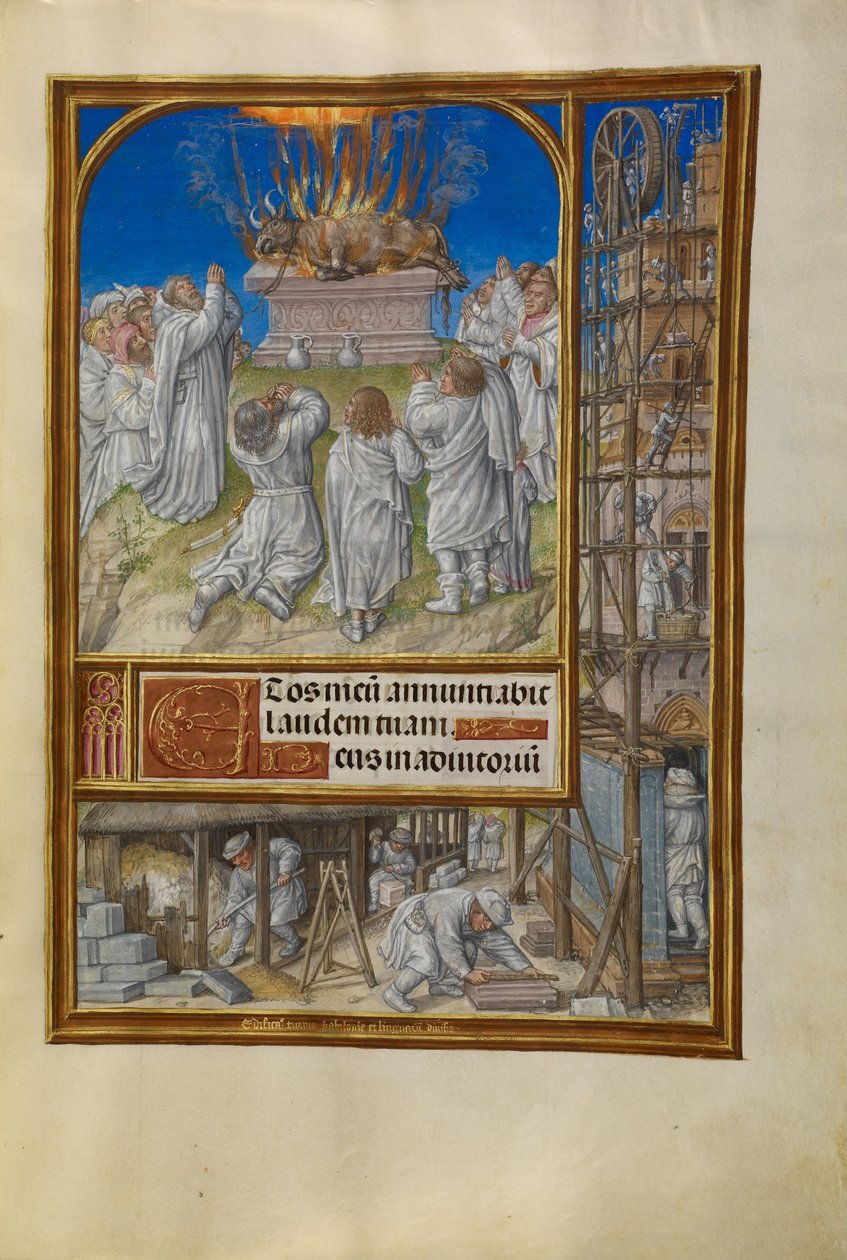 Et os meũ annuntiabit
laudem tuam.
Deus in adiutoriũ
Edificaᵒ. turris babilonie et linguarũ diuisio.